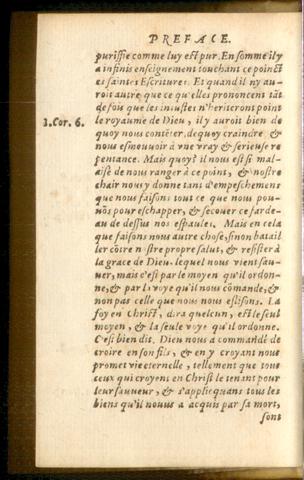 PREFACE.
purifie comme luy est pur. En somme il y
a infinis enseignemens touchant ce poinct
es sainctes Escritures. Et quand il ny au-
roit autre que ce qu'elles prononcent tāt
de fois que les iniustes n'heriteront point
1. Cor. 6.
le royaume de Dieu, il y auroit bien de
quoy nous contēter, de quoy craindre &
nous esmouuoir à vne vray & serieuse re
pentance. Mais quoy? il nous est si mal-
aise de nous ranger à ce point, & nostre
chair nous y donne tant d'empeschement
que nous faisons tout ce que nous pou-
uōs pour eschapper, & secouer ce farde-
au de dessus nos espaules. Mais en cela
que faisons nous autre chose, sinon batail
ler cōtre nostre propre salut, & resister à
la grace de Dieu, lequel nous vient sau-
uer, mais c'est par le moyen qu'il ordon-
ne, & par la voye qu'il nous cōmande, &
non pas celle que nous nous eslisons. La
foy en Christ, dira quelcun, est le seul
moyen, & la seule voye qu'il ordonne.
C'est bien dit. Dieu nous a commandé de
croire en son fils, & en y croyant nous
promet vie eternelle, tellement que tous
ceux qui croyent en Christ le tenant pour
leur sauueur, & s'appliquans tous les
biens qu'il nous a acquis par sa mort,
sont